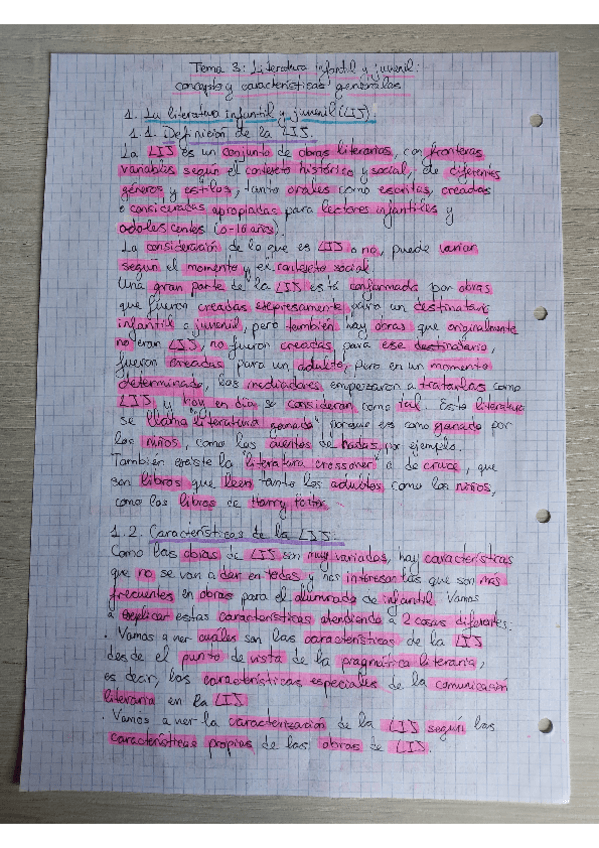 Tema 3: Literatura infantil y juvenil:
concepto y características generales.
1. La literatura infantil y juvenil (LIJ)
1.1. Definición de la LIJ.
La LIJ es un conjunto de obras literarias, con fronteras
variables según el contexto histórico y social, de diferentes
géneros y estilos, tanto orales como escritas, creadas
o consideradas apropiadas para lectores infantiles y
adolescentes (0-16 años).
La consideración de lo que es LIJ o no, puede variar
según el momento y el contexto social.
Una gran parte de la LIJ está conformada por obras
que fueron creadas expresamente para un destinatario
infantil o juvenil, pero también hay obras que originalmente
no eran LIJ, no fueron creadas para ese destinatario,
fueron creadas para un adulto, pero en un momento
determinado, los mediadores empezaron a tratarlas como
LIJ y hoy en día se consideran como tal. Esta literatura
se llama "literatura ganada" porque es como ganado por
los niños, como los cuentos de hadas, por ejemplo.
También existe la "literatura crossover" o de cruce, que
son libros que leen tanto los adultos como los niños,
como los libros de Harry Potter.
1.2. Características de la LIJ.
Como las obras de LIJ son muy variadas, hay características
que no se van a dar en todas y nos interesan las que son más
frecuentes en obras para el alumnado de infantil. Vamos
a explicar estas características atendiendo a 2 cosas diferentes:
· Vamos a ver cuales son las características de la LIJ
desde el punto de vista de la pragmática literaria,
es decir, las características especiales de la comunicación
literaria en la LIJ
· Vamos a ver la caracterización de la LIJ según las
características propias de las obras de LIJ.